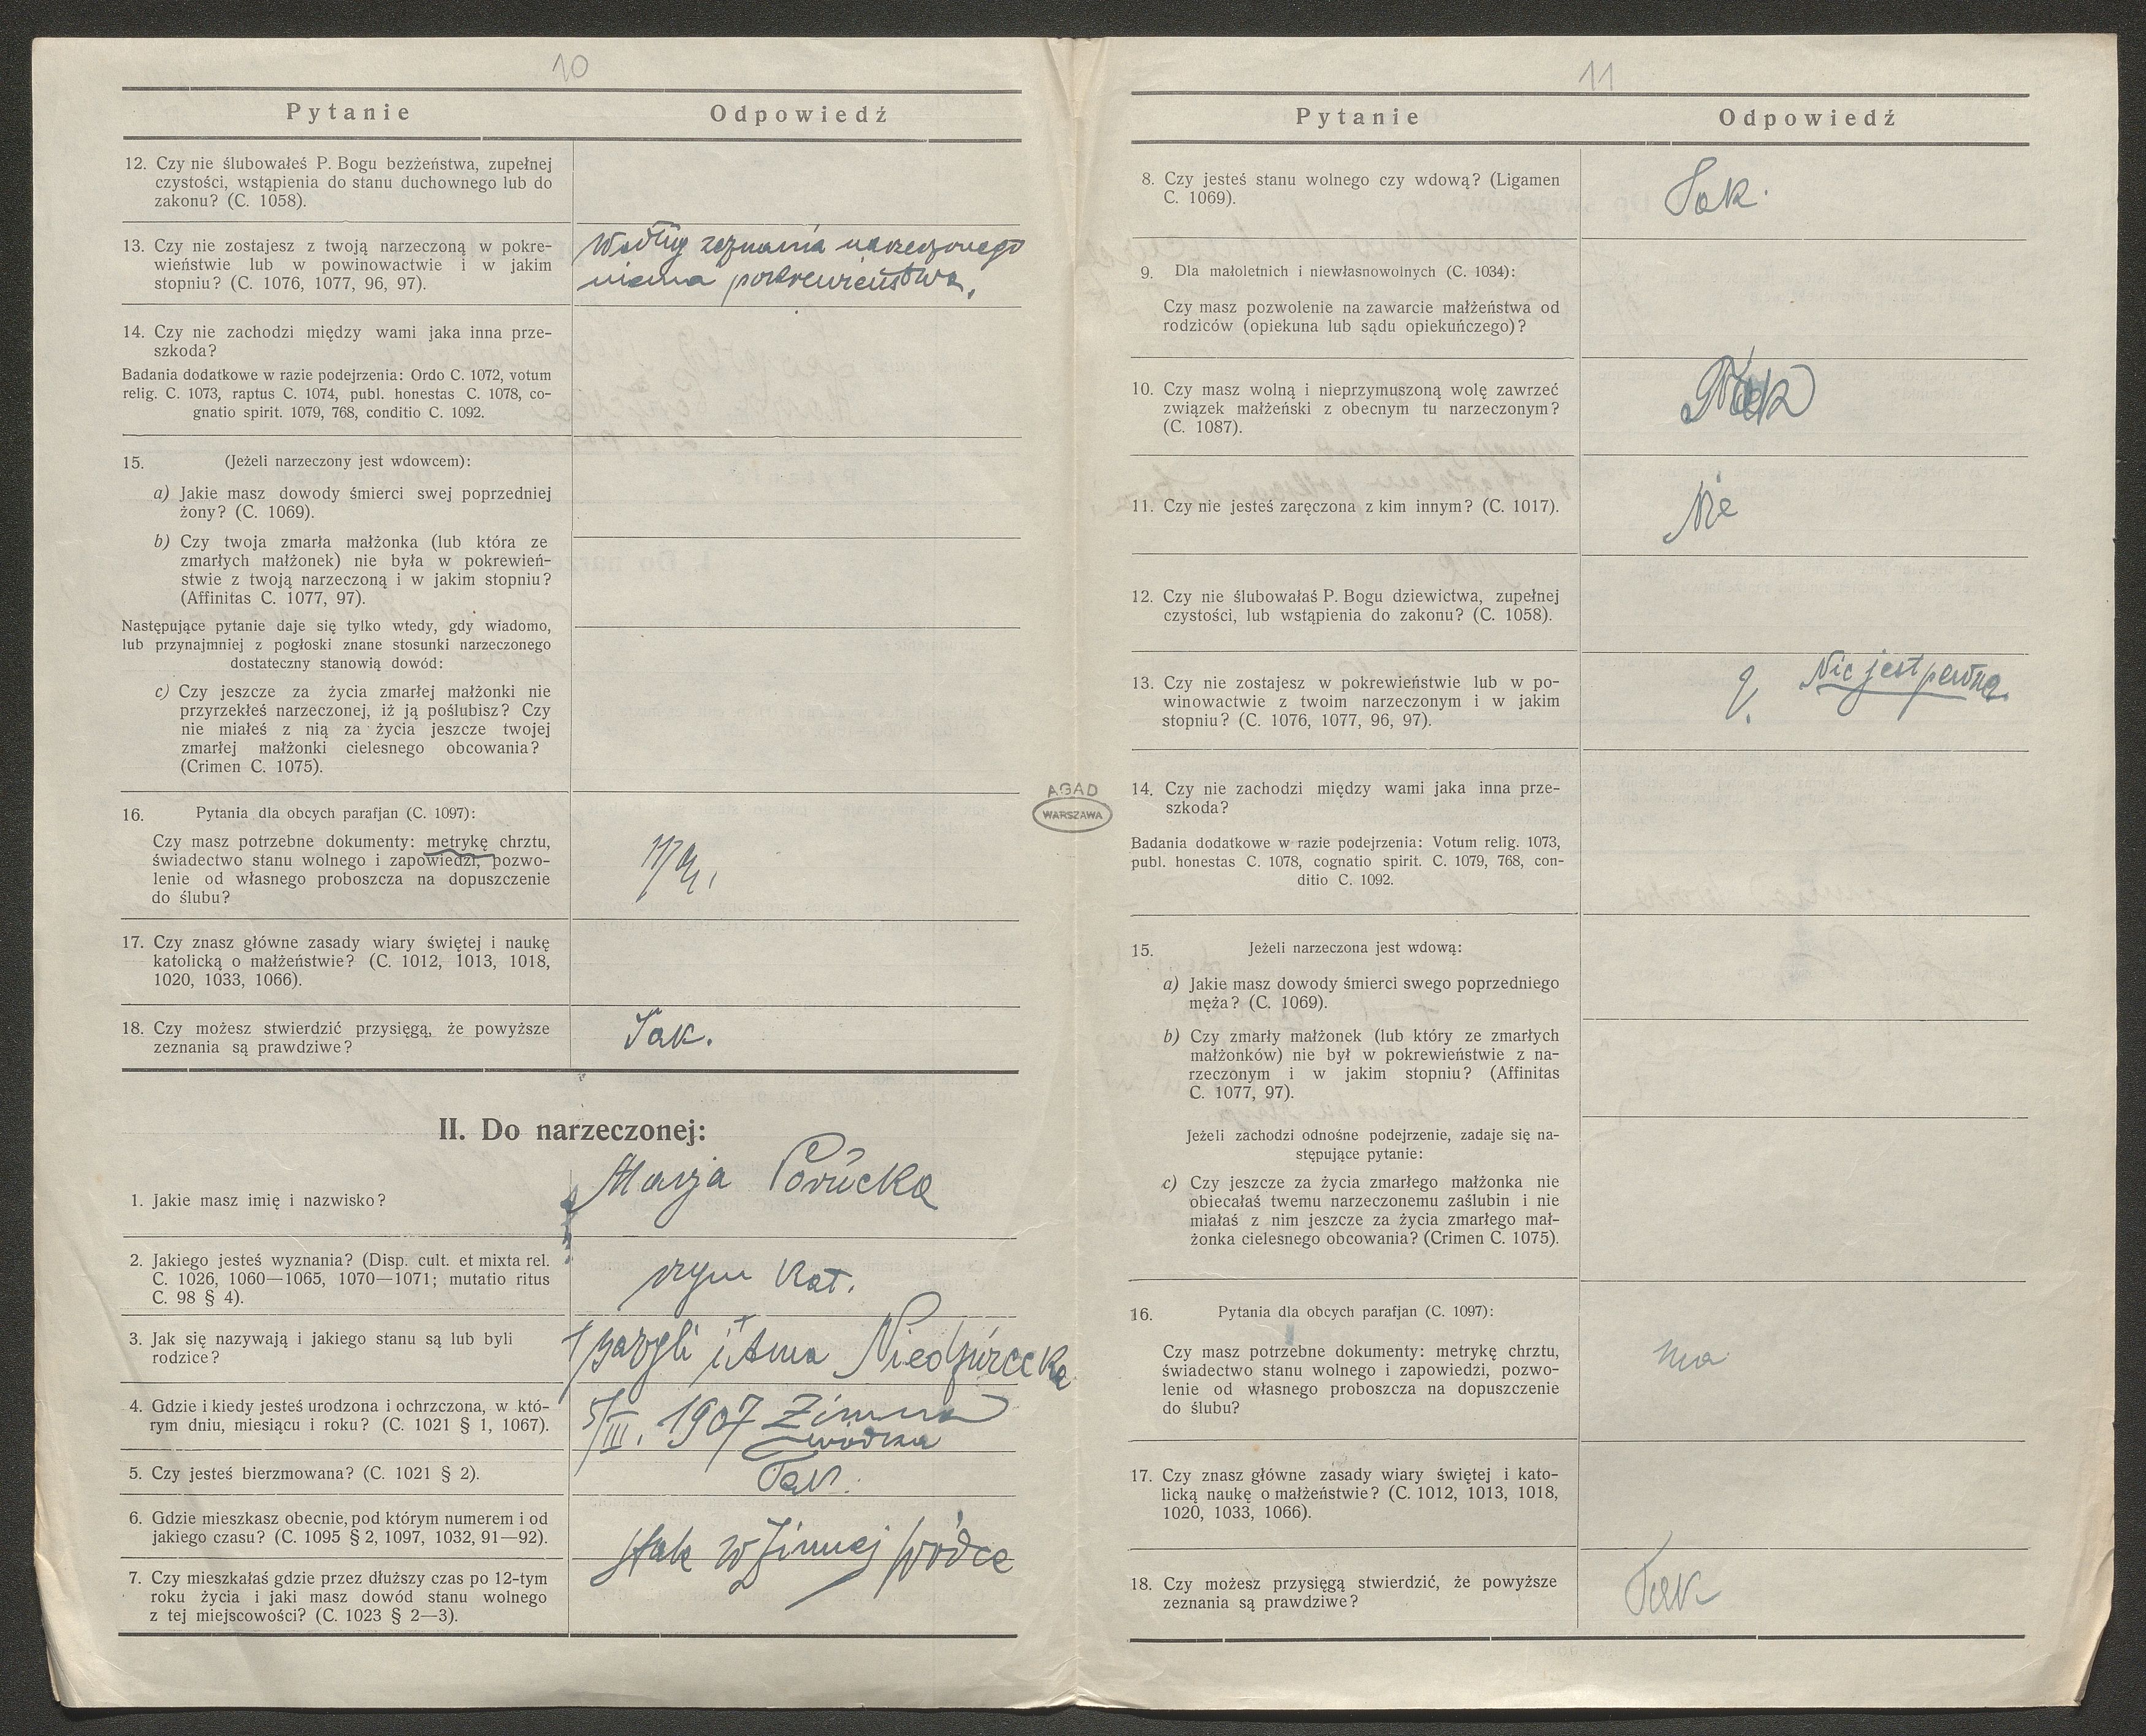 10
Pytanie
Odpowiedź
12. Czy nie ślubowałeś P. Bogu bezżeństwa, zupełnej
czystości, wstąpienia do stanu duchownego lub do
zakonu? (C. 1058).
13. Czy nie zostajesz z twoją narzeczoną w pokre-
wieństwie lub w powinowactwie i w jakim
stopniu? (C. 1076, 1077, 96, 97).
Według zeznania narzeczonego
niema pokrewieństwa.
14. Czy nie zachodzi między wami jaka inna prze-
szkoda?
Badania dodatkowe w razie podejrzenia: Ordo C. 1072, votum
relig. C. 1073, raptus C. 1074, publ. honestas C. 1078, co-
gnatio spirit. 1079, 768, conditio C. 1092.
15. (Jeżeli narzeczony jest wdowcem):
a) Jakie masz dowody śmierci swej poprzedniej
żony? (C. 1069).
b) Czy twoja zmarła małżonka (lub która ze
zmarłych małżonek) nie była w pokrewień-
stwie z twoją narzeczoną i w jakim stopniu?
(Affinitas C. 1077, 97).
Następujące pytanie daje się tylko wtedy, gdy wiadomo,
lub przynajmniej z pogłoski znane stosunki narzeczonego
dostateczny stanowią dowód:
c) Czy jeszcze za życia zmarłej małżonki nie
przyrzekłeś narzeczonej, iż ją poślubisz? Czy
nie miałeś z nią za życia jeszcze twojej
zmarłej małżonki cielesnego obcowania?
(Crimen C. 1075).
16. Pytania dla obcych parafjan (C. 1097):
Czy masz potrzebne dokumenty: metrykę chrztu,
świadectwo stanu wolnego i zapowiedzi, pozwo-
lenie od własnego proboszcza na dopuszczenie
do ślubu?
17. Czy znasz główne zasady wiary świętej i naukę
katolicką o małżeństwie? (C. 1012, 1013, 1018,
1020, 1033, 1066).
18. Czy możesz stwierdzić przysięgą, że powyższe
zeznania są prawdziwe?
Tak.
II. Do narzeczonej:
1. Jakie masz imię i nazwisko?
Marja Porucka
2. Jakiego jesteś wyznania? (Disp. cult. et mixta rel.
C. 1026, 1060—1065, 1070—1071; mutatio ritus
C. 98 § 4).
rzym kat.
3. Jak się nazywają i jakiego stanu są lub byli
rodzice?
i Anna
4. Gdzie i kiedy jesteś urodzona i ochrzczona, w któ-
rym dniu, miesiącu i roku? (C. 1021 § 1, 1067).
5/III. 1907 Zimna
wódka
5. Czy jesteś bierzmowana? (C. 1021 § 2).
Tak.
6. Gdzie mieszkasz obecnie, pod którym numerem i od
jakiego czasu? (C. 1095 § 2, 1097, 1032, 91—92).
w Zimnej wódce
7. Czy mieszkałaś gdzie przez dłuższy czas po 12-tym
roku życia i jaki masz dowód stanu wolnego
z tej miejscowości? (C. 1023 § 2—3).
AGAD
WARSZAWA
11
Pytanie
Odpowiedź
8. Czy jesteś stanu wolnego czy wdową? (Ligamen
C. 1069).
Tak.
9. Dla małoletnich i niewłasnowolnych (C. 1034):
Czy masz pozwolenie na zawarcie małżeństwa od
rodziców (opiekuna lub sądu opiekuńczego)?
10. Czy masz wolną i nieprzymuszoną wolę zawrzeć
związek małżeński z obecnym tu narzeczonym?
(C. 1087).
11. Czy nie jesteś zaręczona z kim innym? (C. 1017).
Nie
12. Czy nie ślubowałaś P. Bogu dziewictwa, zupełnej
czystości, lub wstąpienia do zakonu? (C. 1058).
13. Czy nie zostajesz w pokrewieństwie lub w po-
winowactwie z twoim narzeczonym i w jakim
stopniu? (C. 1076, 1077, 96, 97).
? Nie jest pewna
14. Czy nie zachodzi między wami jaka inna prze-
szkoda?
Badania dodatkowe w razie podejrzenia: Votum relig. 1073,
publ. honestas C. 1078, cognatio spirit. C. 1079, 768, con-
ditio C. 1092.
15. Jeżeli narzeczona jest wdową:
a) Jakie masz dowody śmierci swego poprzedniego
męża? (C. 1069).
b) Czy zmarły małżonek (lub który ze zmarłych
małżonków) nie był w pokrewieństwie z na-
rzeczonym i w jakim stopniu? (Affinitas
C. 1077, 97).
Jeżeli zachodzi odnośne podejrzenie, zadaje się na-
stępujące pytanie:
c) Czy jeszcze za życia zmarłego małżonka nie
obiecałaś twemu narzeczonemu zaślubin i nie
miałaś z nim jeszcze za życia zmarłego mał-
żonka cielesnego obcowania? (Crimen C. 1075).
16. Pytania dla obcych parafjan (C. 1097):
Czy masz potrzebne dokumenty: metrykę chrztu,
świadectwo stanu wolnego i zapowiedzi, pozwo-
lenie od własnego proboszcza na dopuszczenie
do ślubu?
ma
17. Czy znasz główne zasady wiary świętej i kato-
licką naukę o małżeństwie? (C. 1012, 1013, 1018,
1020, 1033, 1066).
18. Czy możesz przysięgą stwierdzić, że powyższe
zeznania są prawdziwe?
Tak